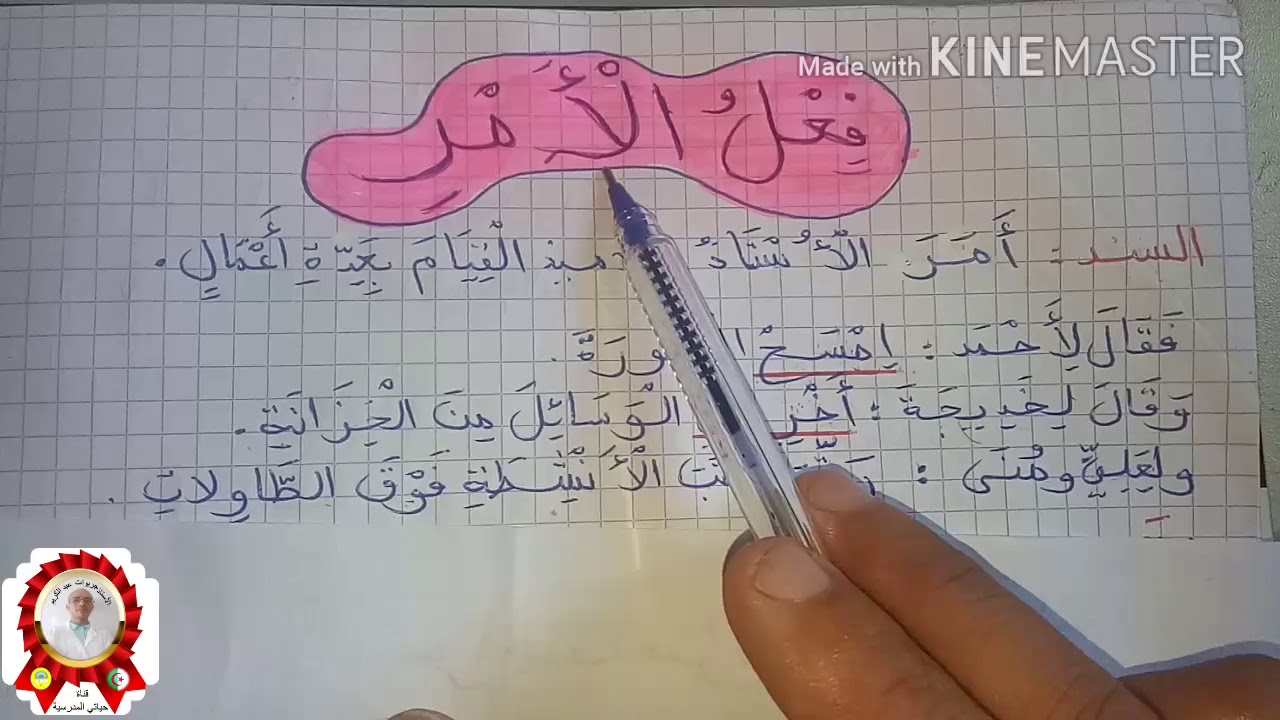 Made with KINEMASTER
فِعْلُ الْأَمْرِ
السند : أَمَرَ الْأُسْتَاذُ الْقِيَامَ بِعِدَّةِ أَعْمَالٍ .
فَقَالَ لِأَحْمَد : اِمْسَحْ
وَقَالَ لِخَدِيجَةَ : الْوَسَائِلَ مِنَ الْخِزَانَةِ .
ولِعَلِيٍّ ومُنَى : الْأَنْشِطَةِ فَوْقَ الطَّاوِلاتِ .
الأستاذ جريوات عبد الكريم
قناة
حياتي المدرسية